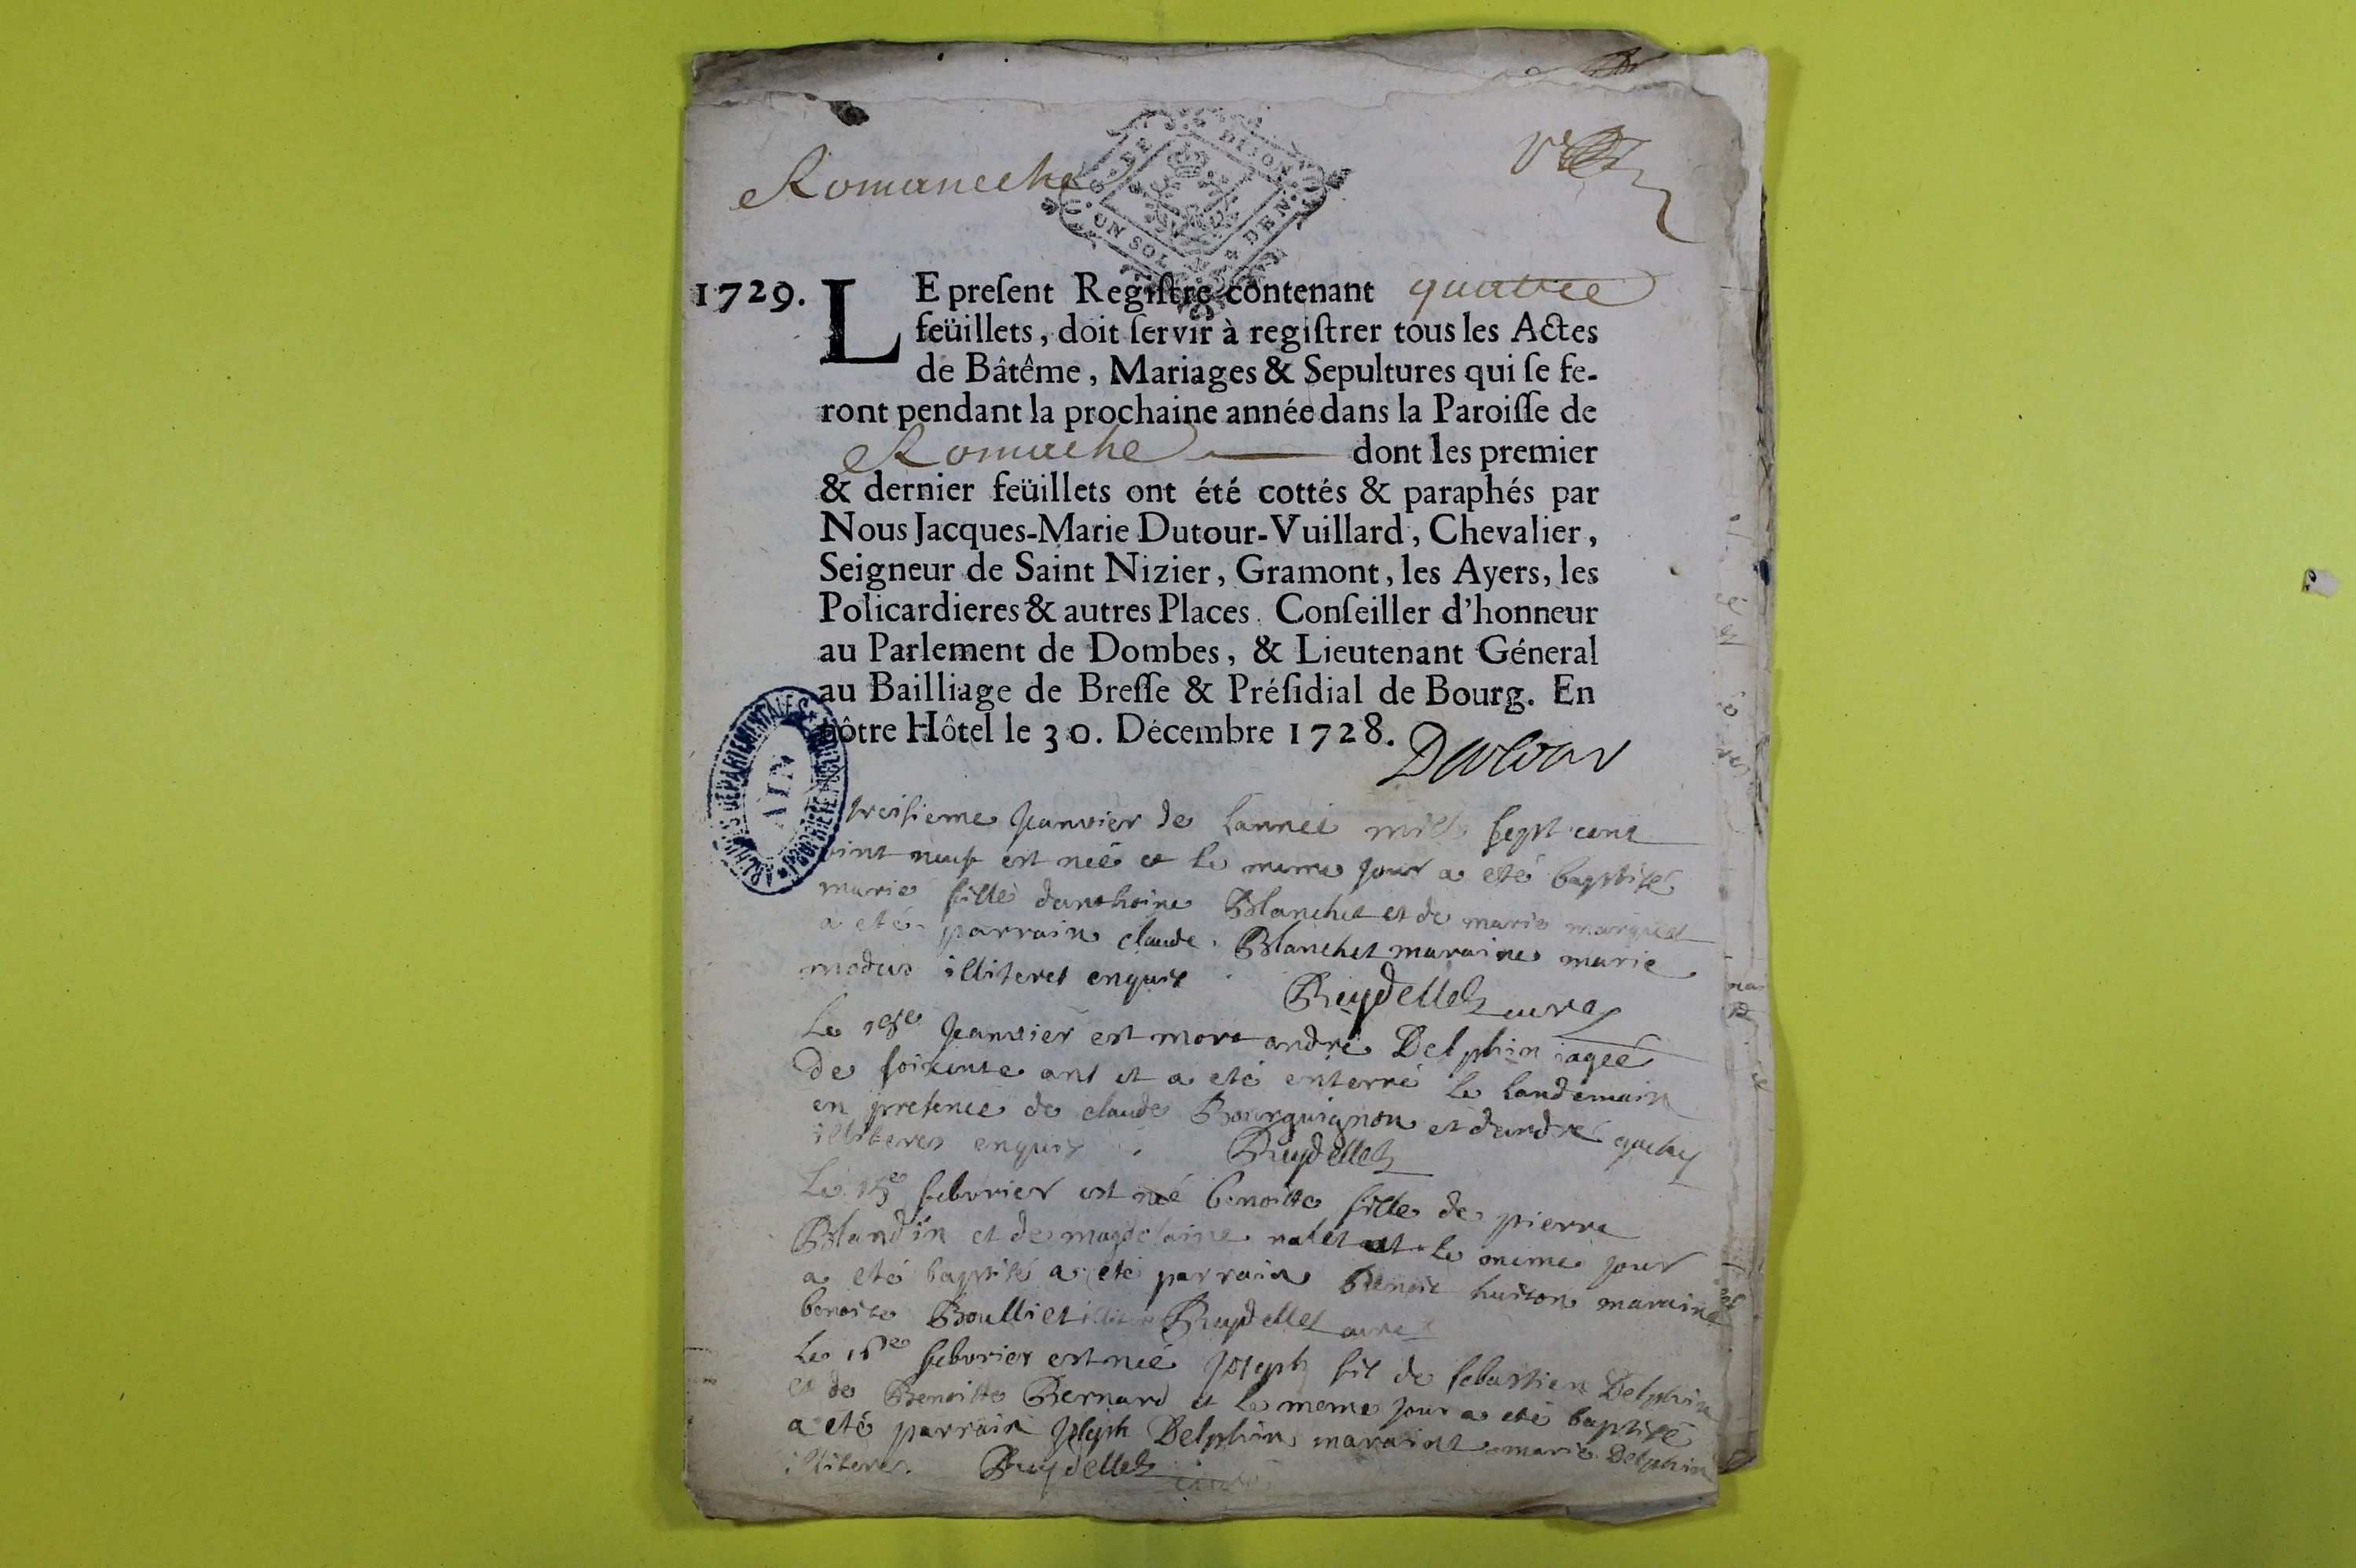 Romaneche
G. DE DIJON
UN SOL 4 DEN.
1729. LE preſent Regiſtre contenant quatre
feüillets, doit ſervir à regiſtrer tous les Actes
de Bâtême, Mariages & Sepultures qui ſe fe-
ront pendant la prochaine année dans la Paroiſſe de
Romache dont les premier
& dernier feüillets ont été cottés & paraphés par
Nous Jacques-Marie Dutour-Vuillard, Chevalier,
Seigneur de Saint Nizier, Gramont, les Ayers, les
Policardieres & autres Places, Conſeiller d'honneur
au Parlement de Dombes, & Lieutenant Géneral
au Bailliage de Breſſe & Préſidial de Bourg. En
nôtre Hôtel le 30. Décembre 1728.
Dutour
ARCHIVES DEPARTEMENTALES
AIN
treisieme Janvier de Lanneé mille sept cent
vint neuf est neé et le meme jour a eté baptisé
marie fille danthoine Blanchet et de marie
a eté parrain claude Blanchet maraine marie
illiteres enquis
Reydellet curé
Le Janvier est mort andré Delphin ageé
de soixente ans et a eté enterré le landemain
en presence de claude Bourguignon et dandré
illiteres enquis Reydellet
Le 15e febvrier est né benoitte fille de pierre
Blandin et de magdelaine et le meme jour
a eté baptisé a eté parrain Benoit huison maraine
benoite Boulliet Reydellet curé
Le febvrier est neé Joseph fils de sebastien Delphin
et de Benoitte Bernard et le meme jour a eté baptisé
a eté parrain Joseph Delphin maraine marie Delphin
illiteres. Reydellet curé